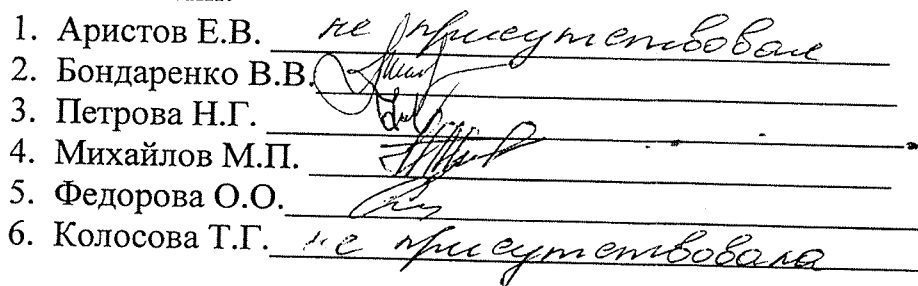 1. Аристов Е.В. не присутствовал
2. Бондаренко В.В.
3. Петрова Н.Г.
4. Михайлов М.П.
5. Федорова О.О.
6. Колосова Т.Г. не присутствовала